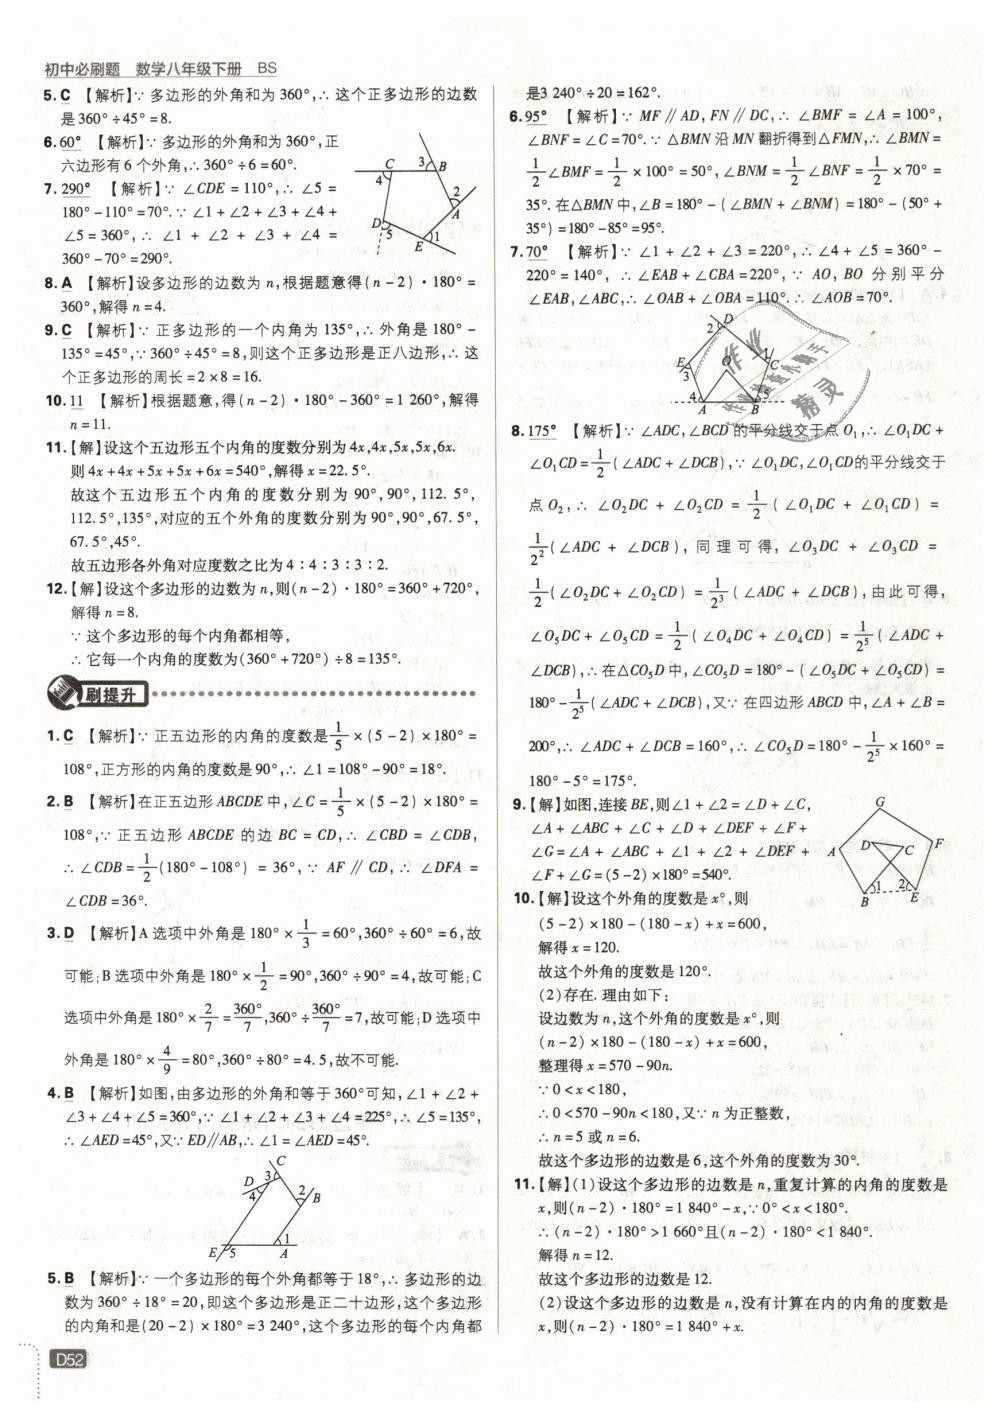 初中必刷题 数学八年级下册 BS
5. C 【解析】∵ 多边形的外角和为 360°,∴ 这个正多边形的边数
是 360° ÷ 45° = 8.
6. 60° 【解析】∵ 多边形的外角和为 360°,正
六边形有 6 个外角,∴ 360° ÷ 6 = 60°.
7. 290° 【解析】∵ ∠CDE = 110°,∴ ∠5 =
180° - 110° = 70°. ∵ ∠1 + ∠2 + ∠3 + ∠4 +
∠5 = 360°, ∴ ∠1 + ∠2 + ∠3 + ∠4 =
360° - 70° = 290°.
C 3 B 4 2 A D 5 1 E
8. A 【解析】设多边形的边数为 n,根据题意得(n - 2)·180° =
360°,解得 n = 4.
9. C 【解析】∵ 正多边形的一个内角为 135°,∴ 外角是 180° -
135° = 45°,∵ 360° ÷ 45° = 8,则这个正多边形是正八边形,∴ 这
个正多边形的周长 = 2 × 8 = 16.
10. 11 【解析】根据题意,得(n - 2)·180° - 360° = 1 260°,解得
n = 11.
11.【解】设这个五边形五个内角的度数分别为 4x,4x,5x,5x,6x.
则 4x + 4x + 5x + 5x + 6x = 540°,解得 x = 22. 5°.
故这个五边形五个内角的度数分别为 90°,90°,112. 5°,
112. 5°,135°,对应的五个外角的度数分别为 90°,90°,67. 5°,
67. 5°,45°.
故五边形各外角对应度数之比为 4∶4∶3∶3∶2.
12.【解】设这个多边形的边数为 n,则(n - 2)·180° = 360° + 720°,
解得 n = 8.
∵ 这个多边形的每个内角都相等,
∴ 它每一个内角的度数为(360° + 720°) ÷ 8 = 135°.
刷提升
1. C 【解析】∵ 正五边形的内角的度数是 1/5 × (5 - 2) × 180° =
108°,正方形的内角的度数是 90°,∴ ∠1 = 108° - 90° = 18°.
2. B 【解析】在正五边形 ABCDE 中,∠C = 1/5 × (5 - 2) × 180° =
108°,∵ 正五边形 ABCDE 的边 BC = CD,∴ ∠CBD = ∠CDB,
∴ ∠CDB = 1/2 (180° - 108°) = 36°,∵ AF // CD,∴ ∠DFA =
∠CDB = 36°.
3. D 【解析】A 选项中外角是 180° × 1/3 = 60°,360° ÷ 60° = 6,故
可能;B 选项中外角是 180° × 1/2 = 90°,360° ÷ 90° = 4,故可能;C
选项中外角是 180° × 2/7 = 360°/7,360° ÷ 360°/7 = 7,故可能;D 选项中
外角是 180° × 4/9 = 80°,360° ÷ 80° = 4. 5,故不可能.
4. B 【解析】如图,由多边形的外角和等于 360°可知,∠1 + ∠2 +
∠3 + ∠4 + ∠5 = 360°,∵ ∠1 + ∠2 + ∠3 + ∠4 = 225°,∴ ∠5 = 135°,
∴ ∠AED = 45°,又∵ ED // AB,∴ ∠1 = ∠AED = 45°.
C D 3 4 2 B 1 E 5 A
5. B 【解析】∵ 一个多边形的每个外角都等于 18°,∴ 多边形的边
数为 360° ÷ 18° = 20,即这个多边形是正二十边形,这个多边形
的内角和是(20 - 2) × 180° = 3 240°,这个多边形的每个内角都
D52
是3 240° ÷ 20 = 162°.
6. 95° 【解析】∵ MF // AD,FN // DC,∴ ∠BMF = ∠A = 100°,
∠BNF = ∠C = 70°. ∵ △BMN 沿 MN 翻折得到△FMN,∴ ∠BMN =
1/2 ∠BMF = 1/2 × 100° = 50°,∠BNM = 1/2 ∠BNF = 1/2 × 70° =
35°. 在△BMN 中,∠B = 180° - (∠BMN + ∠BNM) = 180° - (50° +
35°) = 180° - 85° = 95°.
7. 70° 【解析】∵ ∠1 + ∠2 + ∠3 = 220°,∴ ∠4 + ∠5 = 360° -
220° = 140°, ∴ ∠EAB + ∠CBA = 220°,∵ AO,BO 分别平分
∠EAB,∠ABC,∴ ∠OAB + ∠OBA = 110°. ∴ ∠AOB = 70°.
D 2 E 3 O 1 C 4 5 A B
作业精灵
8. 175° 【解析】∵ ∠ADC,∠BCD 的平分线交于点 O₁,∴ ∠O₁DC +
∠O₁CD = 1/2 (∠ADC + ∠DCB),∵ ∠O₁DC,∠O₁CD的平分线交于
点 O₂,∴ ∠O₂DC + ∠O₂CD = 1/2 (∠O₁DC + ∠O₁CD) =
1/2² (∠ADC + ∠DCB),同理可得,∠O₃DC + ∠O₃CD =
1/2 (∠O₂DC + ∠O₂CD) = 1/2³ (∠ADC + ∠DCB),由此可得,
∠O₅DC + ∠O₅CD = 1/2 (∠O₄DC + ∠O₄CD) = 1/2⁵ (∠ADC +
∠DCB),∴ 在△CO₅D 中,∠CO₅D = 180° - (∠O₅DC + ∠O₅CD) =
180° - 1/2⁵ (∠ADC + ∠DCB),又∵ 在四边形 ABCD 中,∠A + ∠B =
200°,∴ ∠ADC + ∠DCB = 160°,∴ ∠CO₅D = 180° - 1/2⁵ × 160° =
180° - 5° = 175°.
9.【解】如图,连接 BE,则∠1 + ∠2 = ∠D + ∠C,
∠A + ∠ABC + ∠C + ∠D + ∠DEF + ∠F +
∠G = ∠A + ∠ABC + ∠1 + ∠2 + ∠DEF +
∠F + ∠G = (5 - 2) × 180° = 540°.
G A D C F 1 2 B E
10.【解】设这个外角的度数是 x°,则
(5 - 2) × 180 - (180 - x) + x = 600,
解得 x = 120.
故这个外角的度数是 120°.
(2)存在. 理由如下:
设边数为 n,这个外角的度数是 x°,则
(n - 2) × 180 - (180 - x) + x = 600,
整理得 x = 570 - 90n.
∵ 0 < x < 180,
∴ 0 < 570 - 90n < 180,又∵ n 为正整数,
∴ n = 5 或 n = 6.
故这个多边形的边数是 6,这个外角的度数为 30°.
11.【解】(1)设这个多边形的边数是 n,重复计算的内角的度数是
x,则(n - 2)·180° = 1 840° - x,∵ 0° < x < 180°.
∴ (n - 2)·180° > 1 660°且(n - 2)·180° < 1 840°.
解得 n = 12.
故这个多边形的边数是 12.
(2)设这个多边形的边数是 n,没有计算在内的内角的度数是
x,则(n - 2)·180° = 1 840° + x.